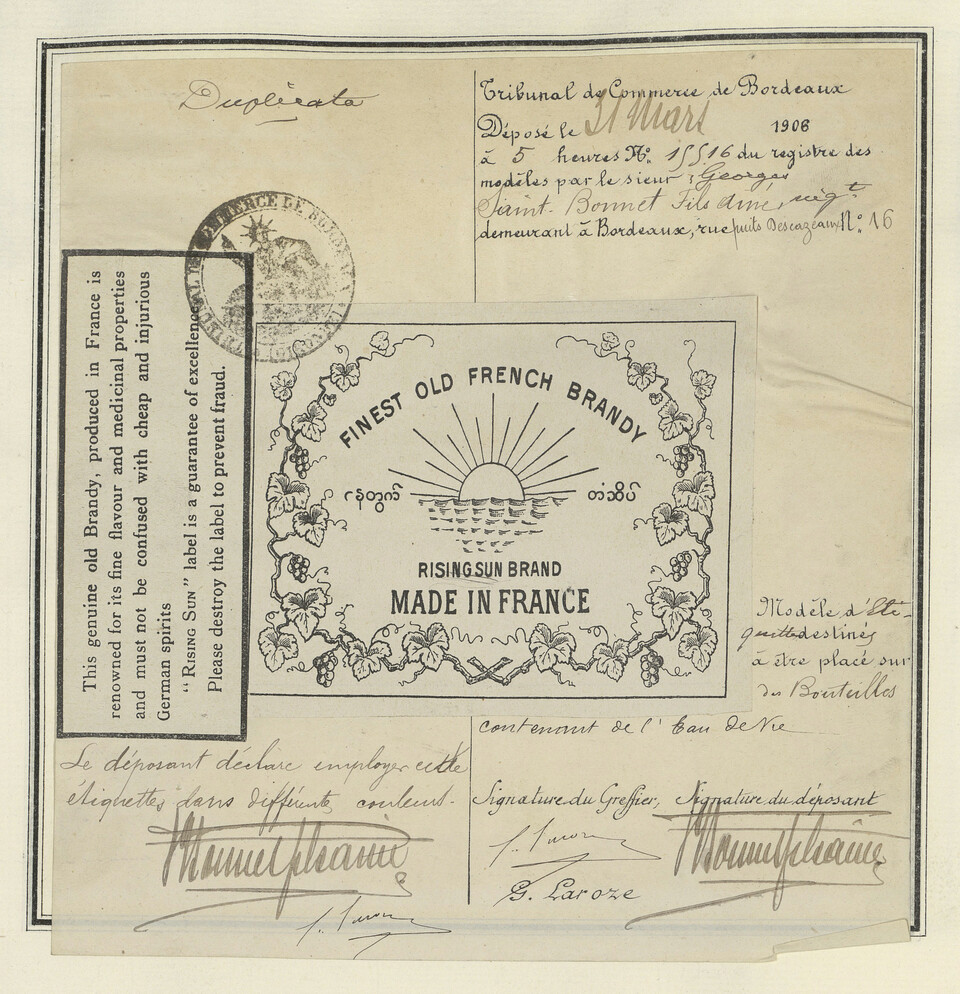 Duplicata
Tribunal de Commerce de Bordeaux
Déposé le 31 Mars 1906
à 5 heures No. 15516 du registre des
modèles par le sieur Georges
Saint-Bonnet Fils aîné, nég.t
demeurant à Bordeaux, rue puits Descazeaux No. 16
This genuine old Brandy, produced in France is
renowned for its fine flavour and medicinal properties
and must not be confused with cheap and injurious
German spirits
"RISING SUN" label is a guarantee of excellence
Please destroy the label to prevent fraud.
FINEST OLD FRENCH BRANDY
နေထွက် တံဆိပ်
RISING SUN BRAND
MADE IN FRANCE
Modèle d'Éti-
quettes destinés
à être placé sur
des Bouteilles
contenant de l'Eau de Vie
Le déposant déclare employer cette
étiquettes dans différents couleurs.
Signature du Greffier, Signature du déposant
G. Laroze